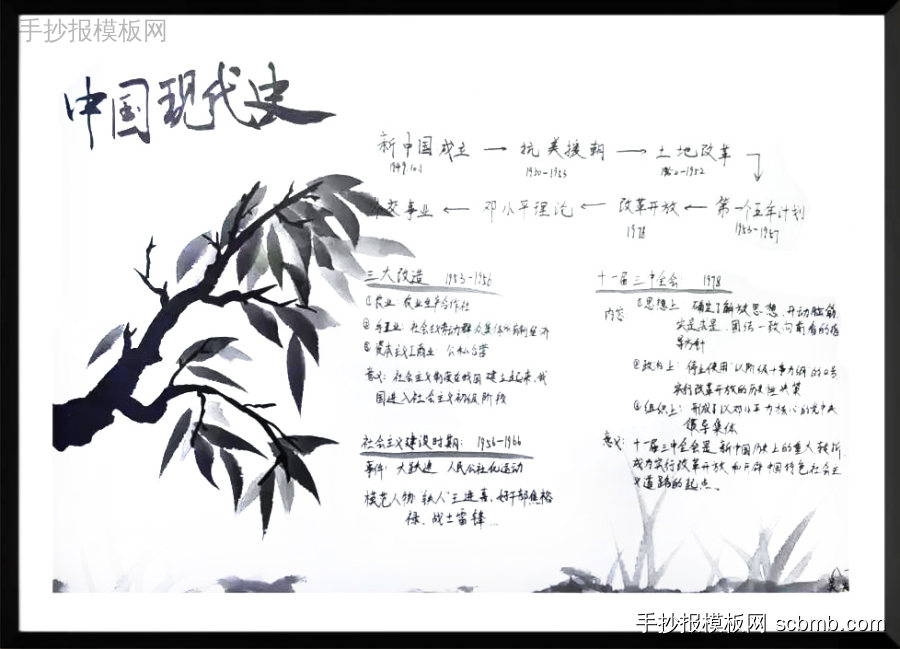 手抄报模板网
中国现代史
新中国成立 → 抗美援朝 → 土地改革
1949.10.1 1950-1953 1950-1952
交事业 ← 邓小平理论 ← 改革开放 ← 第一个五年计划
1978 1953-1957
三大改造 1953-1956
①农业:农业生产合作社
②手工业:社会主义劳动群众集体所有制经济
③资本主义工商业:公私合营
意义:社会主义制度在我国建立起来,我
国进入社会主义初级阶段
社会主义建设时期:1956-1966
事件:大跃进 人民公社化运动
模范人物:铁人王进喜、好干部焦裕
禄、战士雷锋...
十一届三中全会: 1978
内容:①思想上 确定了解放思想、开动脑筋、
实事求是、团结一致向前看的指
导方针
②政治上:停止使用“以阶级斗争为纲”的口号
实行改革开放的历史性决策
③组织上:形成了以邓小平为核心的党中央
领导集体
意义:十一届三中全会是新中国历史上的重大转折
成为实行改革开放和开辟中国特色社会主
义道路的起点。
手抄报模板网 scbmb.com